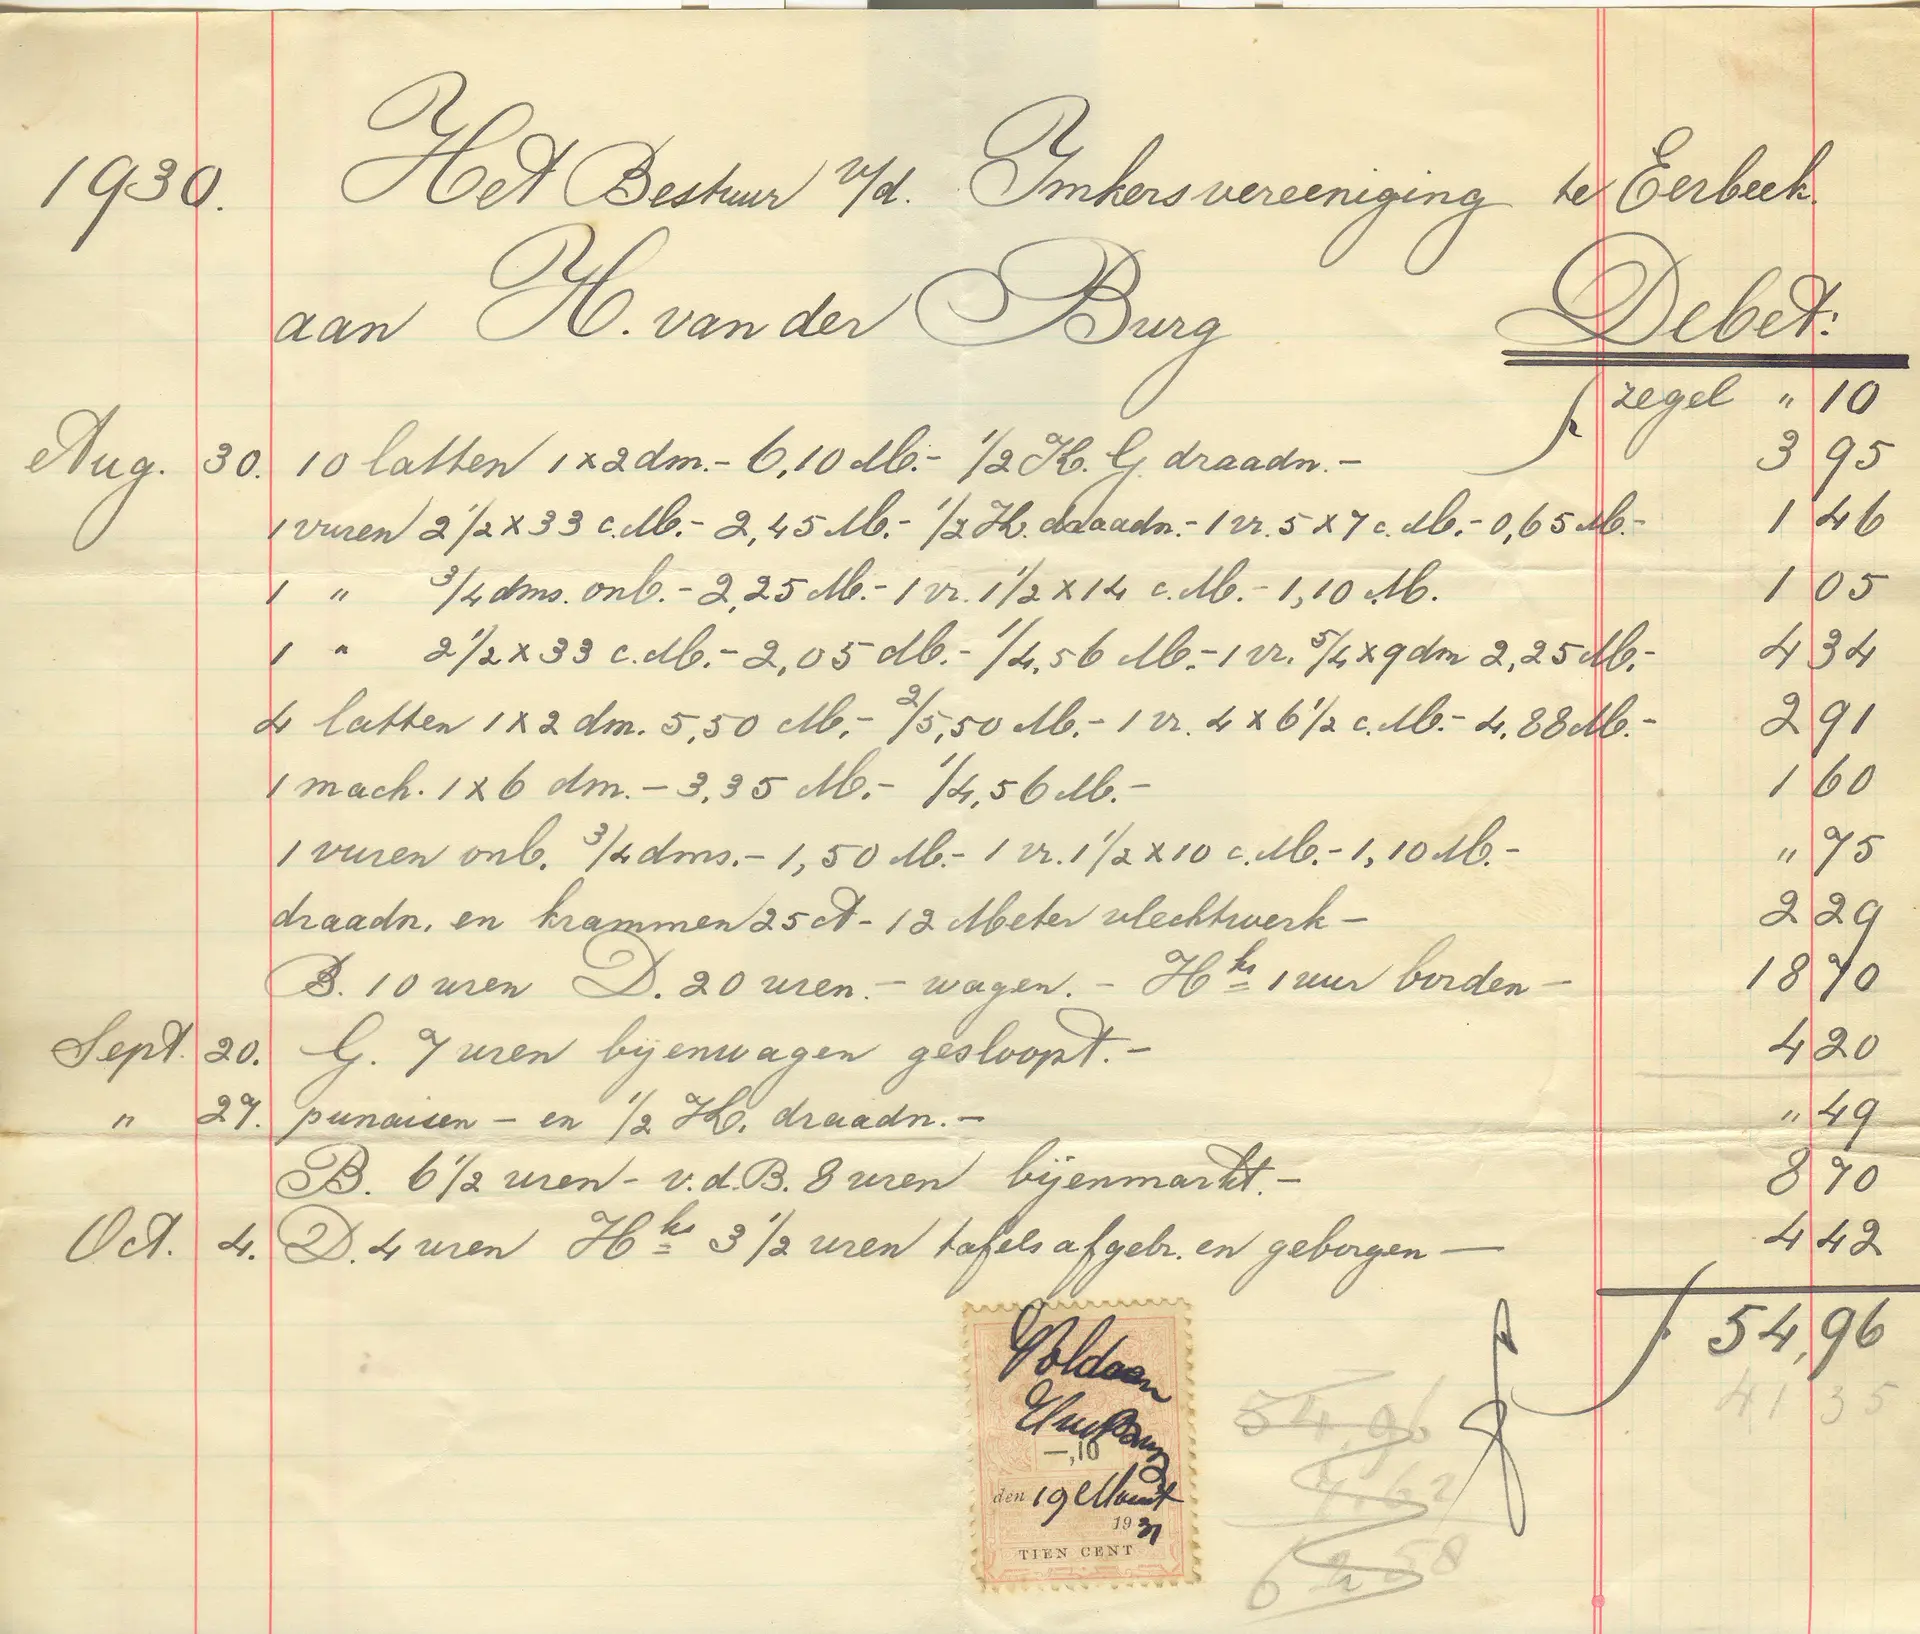 1930. Het Bestuur v/d. Imkersvereeniging te Eerbeek.
aan H. van der Burg Debet:
zegel " 10
Aug. 30. 10 latten 1 x 2 dm. - 6,10 M. - 1/2 K. G. draadn. - f 3 95
1 vuren 2 1/2 x 33 c.M. - 2,45 M. - 1/2 K. draadn. - 1 vr. 5 x 7 c.M. - 0,65 M. - 1 46
1 " 3/4 dms. onb. - 2,25 M. - 1 vr. 1 1/2 x 14 c.M. - 1,10 M. 1 05
1 " 2 1/2 x 33 c.M. - 2,05 M. - 1/4,56 M. - 1 vr. 5/4 x 9 dm 2,25 M. - 4 34
4 latten 1 x 2 dm. 5,50 M. - 2/5,50 M. - 1 vr. 4 x 6 1/2 c.M. - 4,88 M. - 2 91
1 mach. 1 x 6 dm. - 3,35 M. - 1/4,56 M. - 1 60
1 vuren onb. 3/4 dms. - 1,50 M. - 1 vr. 1 1/2 x 10 c.M. - 1,10 M. - " 75
draadn. en krammen 25 ct - 12 Meter vlechtwerk - 2 29
B. 10 uren D. 20 uren. - wagen. - Hks 1 uur borden - 18 70
Sept. 20. G. 7 uren bijenwagen gesloopt. - 4 20
" 27. punaisen - en 1/2 K. draadn. - " 49
B. 6 1/2 uren - v.d.B. 8 uren bijenmarkt. - 8 70
Oct. 4. D. 4 uren Hks 3 1/2 uren tafels afgebr. en geborgen — 4 42
f 54,96
41 35
Voldaan
—,10
den 19 Maart
1931
TIEN CENT
54,96
7,62
62,58